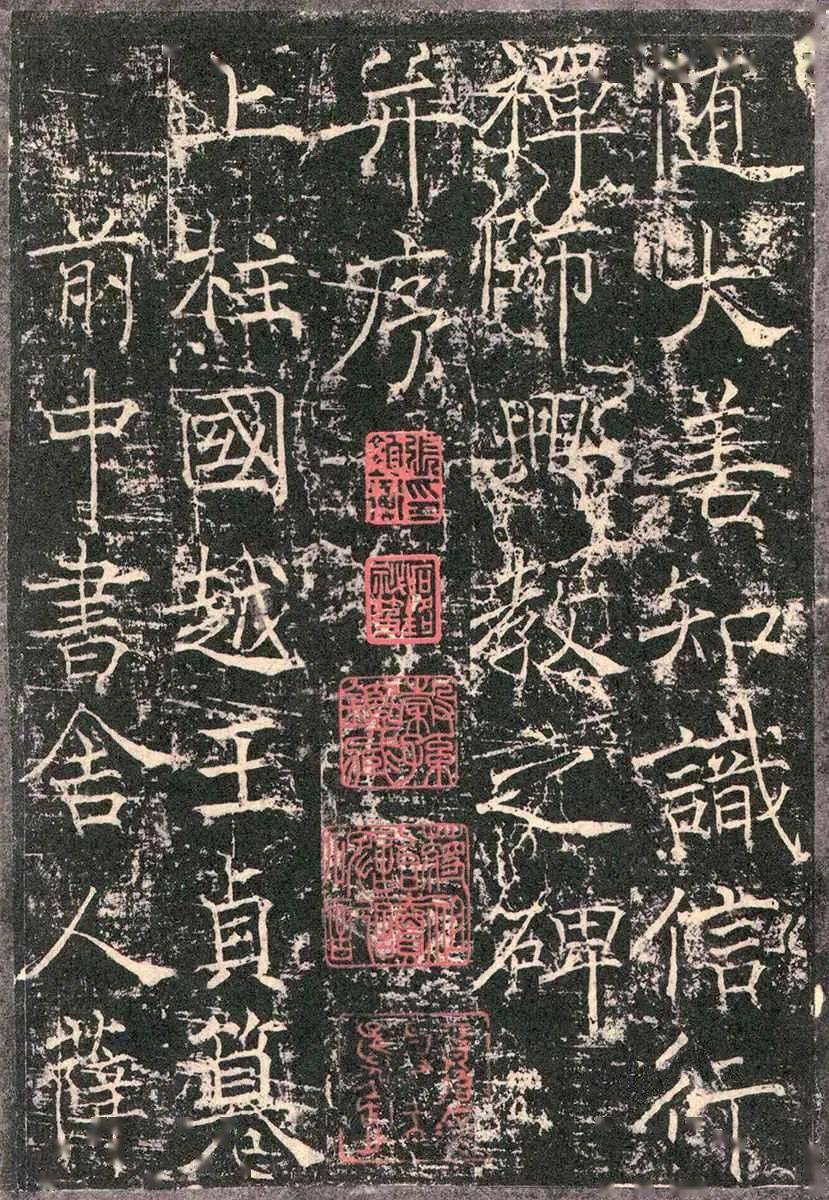 随大善知識信行
禪師興教之碑
并序
上柱國越王貞篡
前中書舍人薩